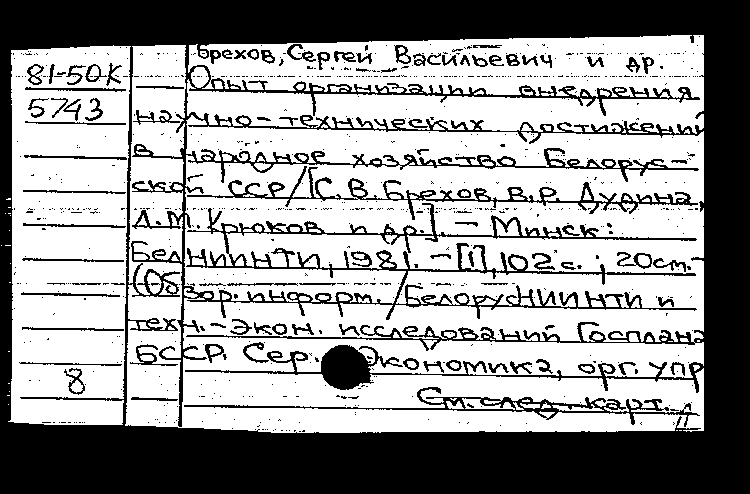 Брехов, Сергей Васильевич и др.
81-50К Опыт организации внедрения
5743 научно-технических достижений
в народное хозяйство Белорус-
ской ССР/[С.В.Брехов, В.Р. Дудина,
Л.М. Крюков и др.]. – Минск:
БелНИИНТИ, 1981. – [1], 102 с. ; 20см. –
(Обзор. информ. /БелорусНИИНТИ и
техн.-экон. исследований Госплана
БССР. Сер. Экономика, орг. упр
8
См. след. карт.